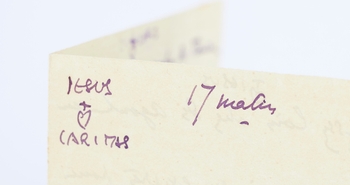 JESUS
CARITAS
17 matin